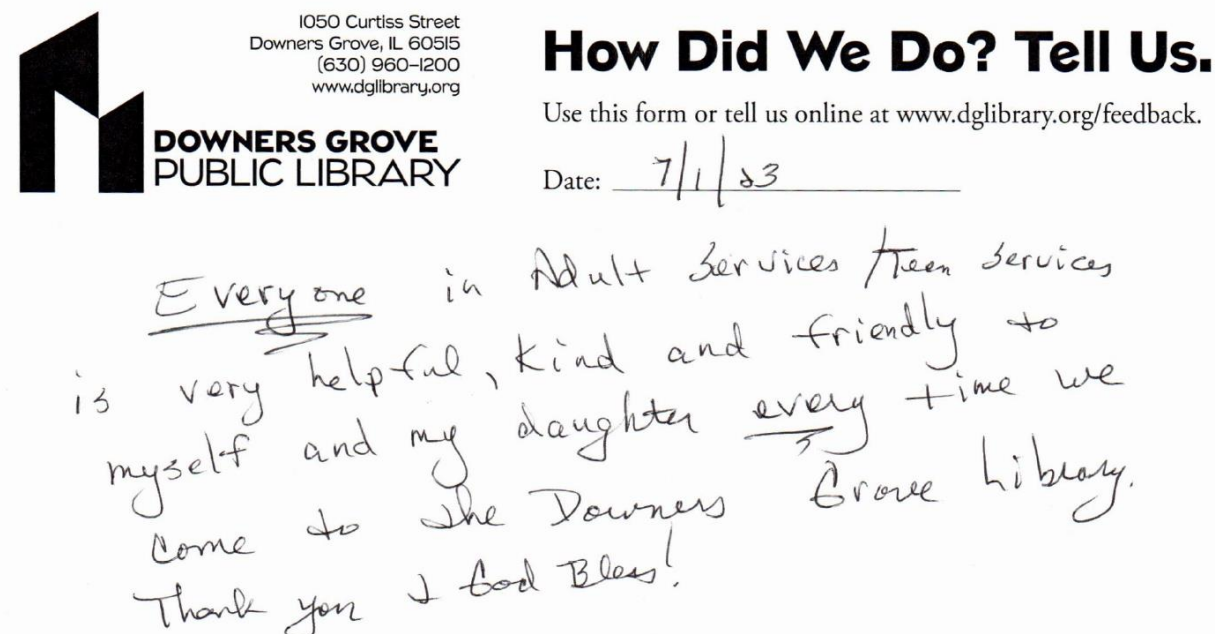 1050 Curtiss Street
Downers Grove, IL 60515
(630) 960-1200
www.dglibrary.org
DOWNERS GROVE
PUBLIC LIBRARY
How Did We Do? Tell Us.
Use this form or tell us online at www.dglibrary.org/feedback.
Date: 7/1/23
Everyone in Adult Services/Teen Services
is very helpful, kind and friendly to
myself and my daughter every time we
come to the Downers Grove Library.
Thank you & God Bless!